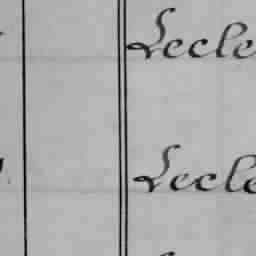 Lecle
Lecle